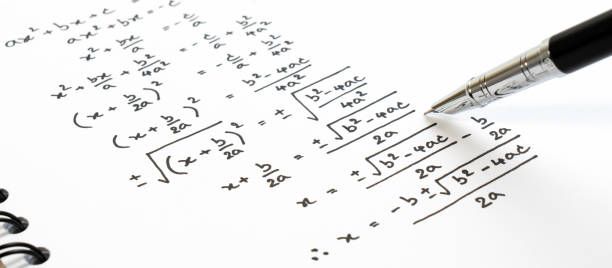 ax² + bx + c =
ax² + bx = -c
x² + bx/a = -c/a
x² + bx/a + b²/4a² = -c/a + b²/4a²
(x + b/2a)² = -c/a + b²/4a²
(x + b/2a)² = b² - 4ac/4a²
±√(x + b/2a)² = ±√b² - 4ac/4a²
x + b/2a = ±√b² - 4ac/2a
x = ±√b² - 4ac/2a - b/2a
∴ x = -b ±√b² - 4ac/2a